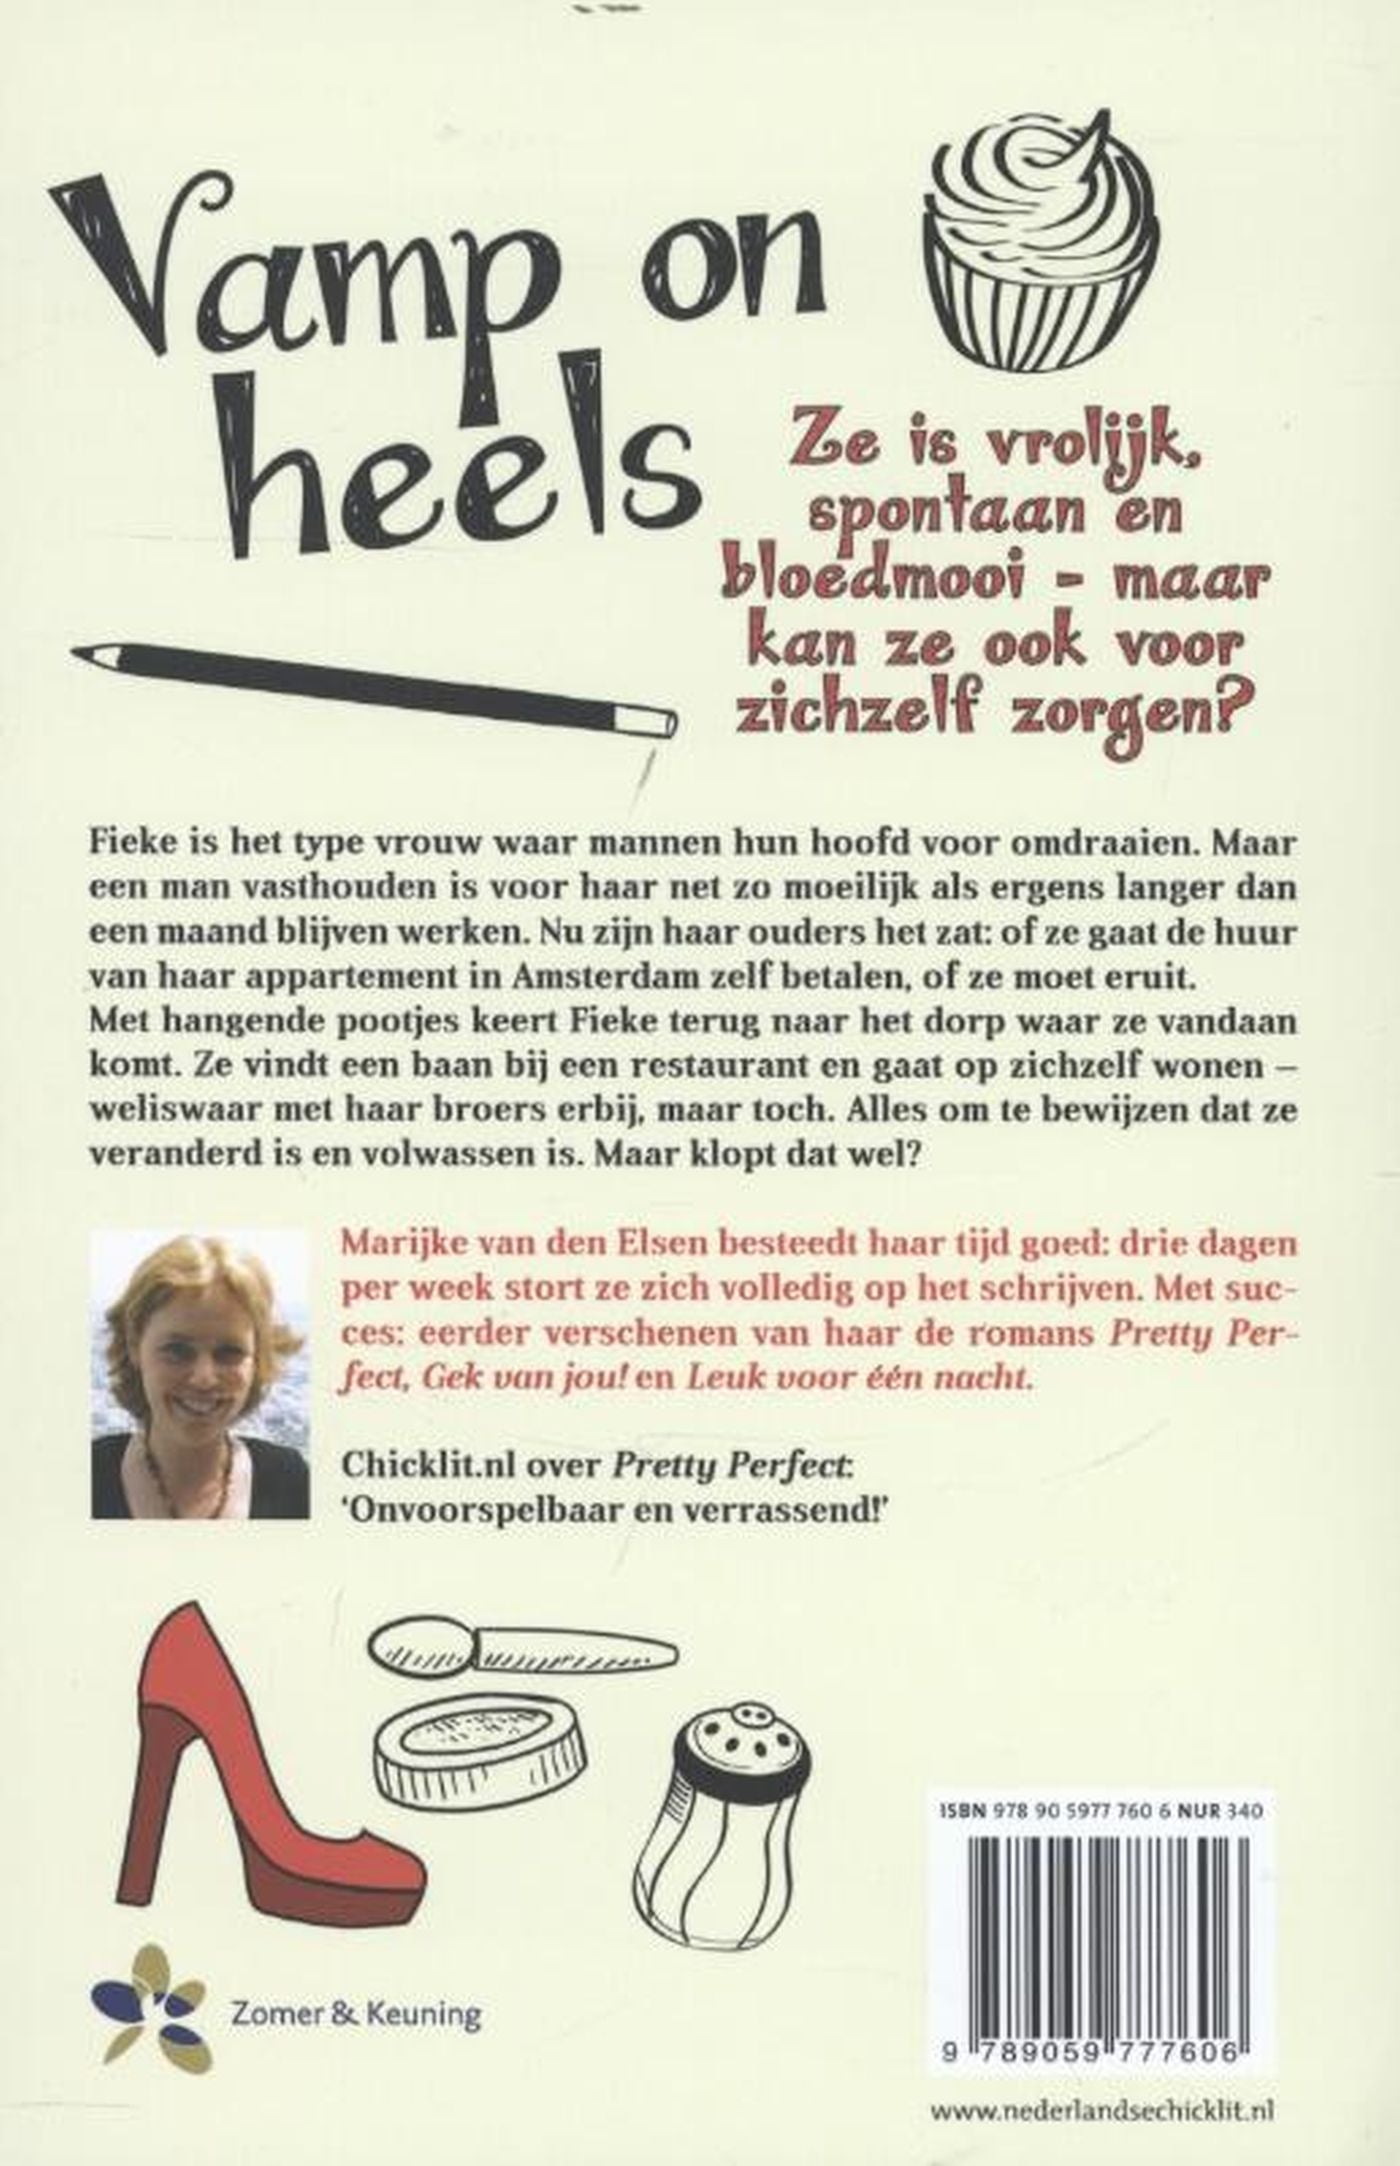 Vamp on
heels
Ze is vrolijk,
spontaan en
bloedmooi - maar
kan ze ook voor
zichzelf zorgen?
Fieke is het type vrouw waar mannen hun hoofd voor omdraaien. Maar
een man vasthouden is voor haar net zo moeilijk als ergens langer dan
een maand blijven werken. Nu zijn haar ouders het zat: of ze gaat de huur
van haar appartement in Amsterdam zelf betalen, of ze moet eruit.
Met hangende pootjes keert Fieke terug naar het dorp waar ze vandaan
komt. Ze vindt een baan bij een restaurant en gaat op zichzelf wonen –
weliswaar met haar broers erbij, maar toch. Alles om te bewijzen dat ze
veranderd is en volwassen is. Maar klopt dat wel?
Marijke van den Elsen besteedt haar tijd goed: drie dagen
per week stort ze zich volledig op het schrijven. Met suc-
ces: eerder verschenen van haar de romans Pretty Per-
fect, Gek van jou! en Leuk voor één nacht.
Chicklit.nl over Pretty Perfect:
‘Onvoorspelbaar en verrassend!’
Zomer & Keuning
ISBN 978 90 5977 760 6 NUR 340
9 789059 777606
www.nederlandsechicklit.nl